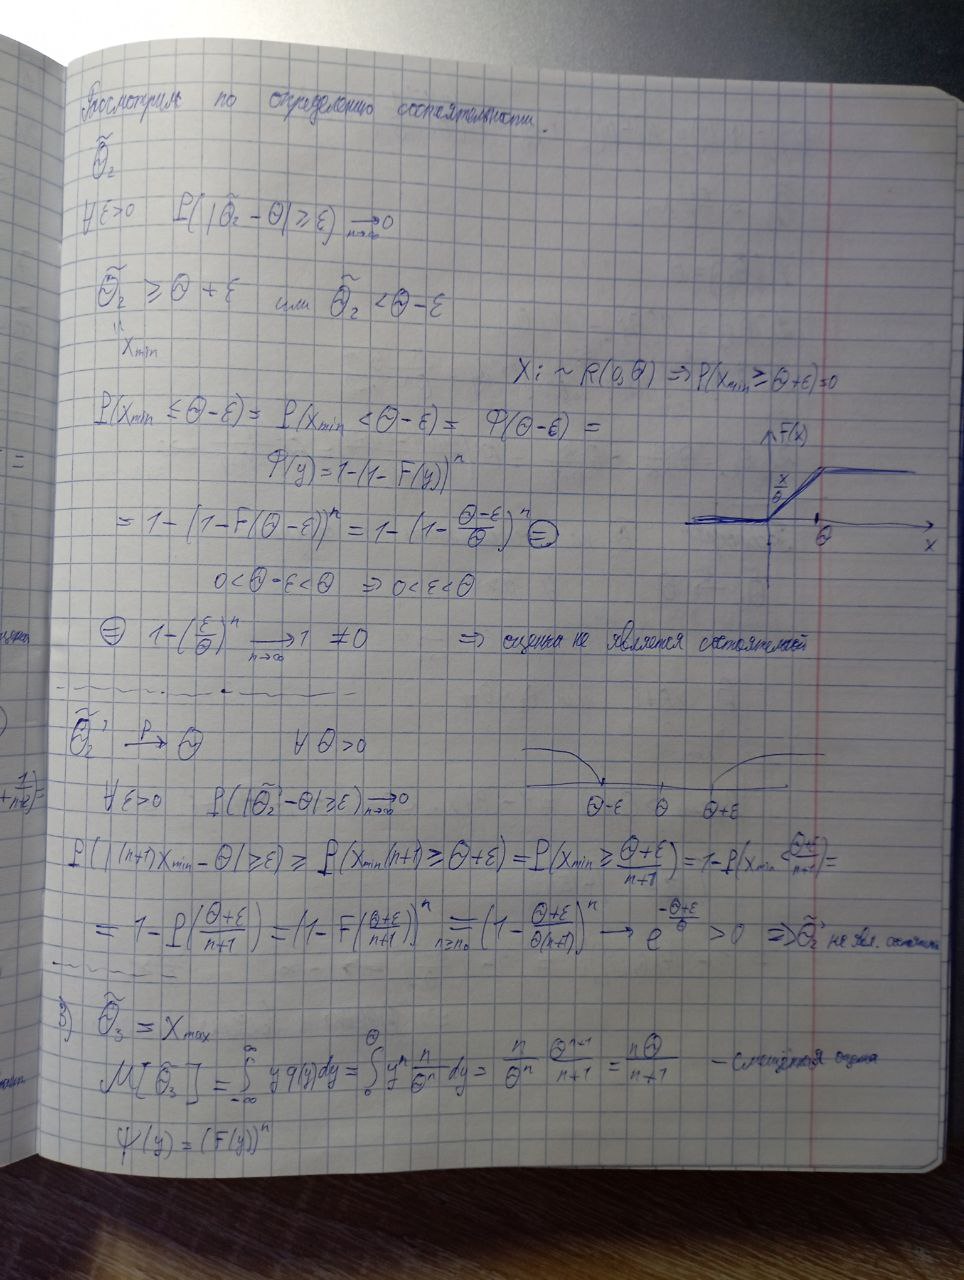 Рассмотрим по определению состоятельности.
Θ̃₂
∀ε>0 P(|Θ̃₂ - Θ| ≥ ε) →(n→∞) 0
Θ̃₂ ≥ Θ + ε или Θ̃₂ < Θ - ε
" x_min
X_i ~ R(0,Θ) ⇒ P(x_min ≥ Θ+ε)=0
P(x_min ≤ Θ-ε) = P(x_min < Θ-ε) = Φ(Θ-ε) =
F(x)
Φ(y) = 1-(1-F(y))ⁿ
x/Θ
= 1-(1-F(Θ-ε))ⁿ = 1-(1-(Θ-ε)/Θ)ⁿ ⊜
Θ x
0<Θ-ε<Θ ⇒ 0<ε<Θ
⊜ 1-(ε/Θ)ⁿ →(n→∞) 1 ≠ 0 ⇒ оценка не является состоятельной
Θ̃₂' →(P) Θ ∀Θ>0
∀ε>0 P(|Θ̃₂'-Θ| ≥ ε) →(n→∞) 0
Θ-ε Θ Θ+ε
P(|(n+1)x_min - Θ| ≥ ε) ≥ P(x_min(n+1) ≥ Θ+ε) = P(x_min ≥ (Θ+ε)/(n+1)) = 1-P(x_min < (Θ+ε)/(n+1)) =
= 1-P((Θ+ε)/(n+1)) = (1-F((Θ+ε)/(n+1)))ⁿ =(n≥n₀) (1-(Θ+ε)/(Θ(n+1)))ⁿ → e^(-(Θ+ε)/Θ) > 0 ⇒ Θ̃₂' не явл. состоят
3) Θ̃₃ = x_max
M[Θ̃₃] = ∫_{-∞}^{∞} y φ(y)dy = ∫_0^Θ yⁿ n/Θⁿ dy = n/Θⁿ Θⁿ⁺¹/(n+1) = nΘ/(n+1) - смещённая оценка
Ψ(y) = (F(y))ⁿ